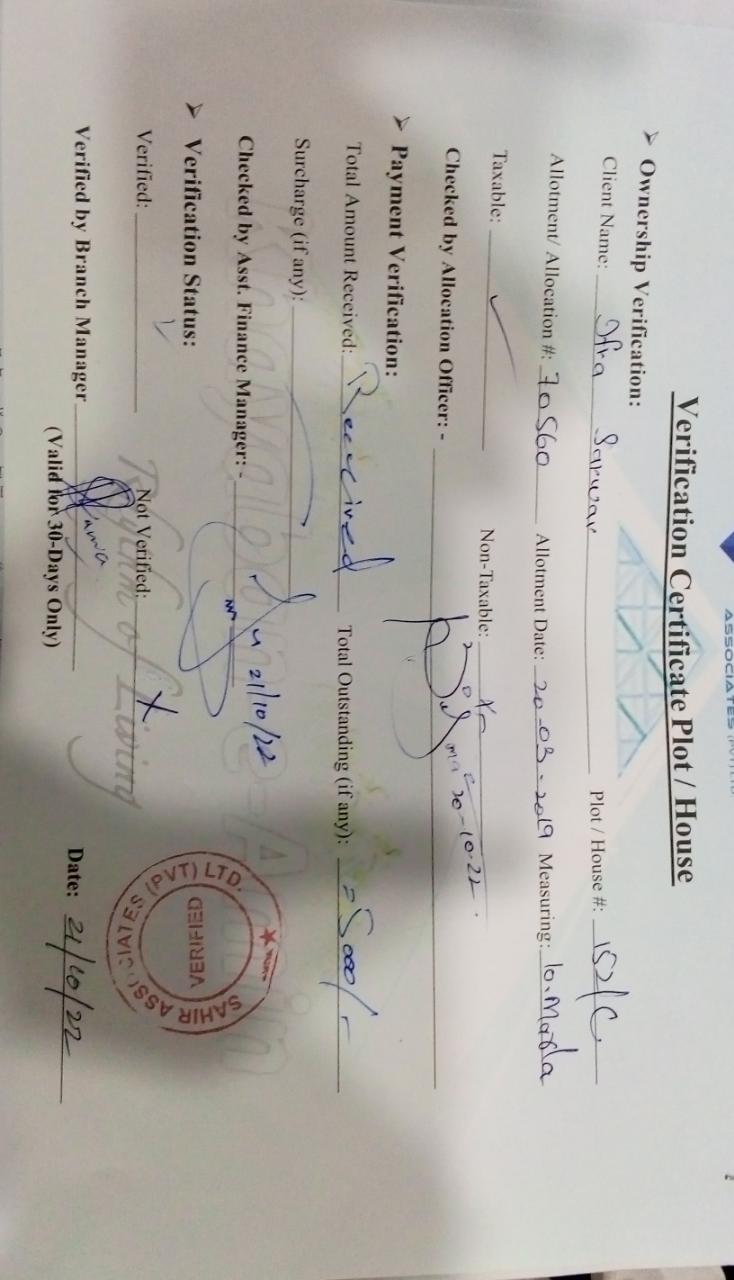 ASSOCIATES (PVT) LTD.
Verification Certificate Plot / House
➢ Ownership Verification:
Client Name: Ifra Sarwar Plot / House #: 152/C
Allotment/ Allocation #: 70560 Allotment Date: 20-03-2019 Measuring: 10.Marla
Taxable: ✓ Non-Taxable:
Checked by Allocation Officer: - 20-10-22.
➢ Payment Verification:
Total Amount Received: Received Total Outstanding (if any): =5000/-
Surcharge (if any):
Checked by Asst. Finance Manager: - 21/10/22
➢ Verification Status:
Verified: ✓ Not Verified: X
Verified by Branch Manager Date: 21/10/22
(Valid for 30-Days Only)
SAHIR ASSOCIATES (PVT) LTD.
VERIFIED